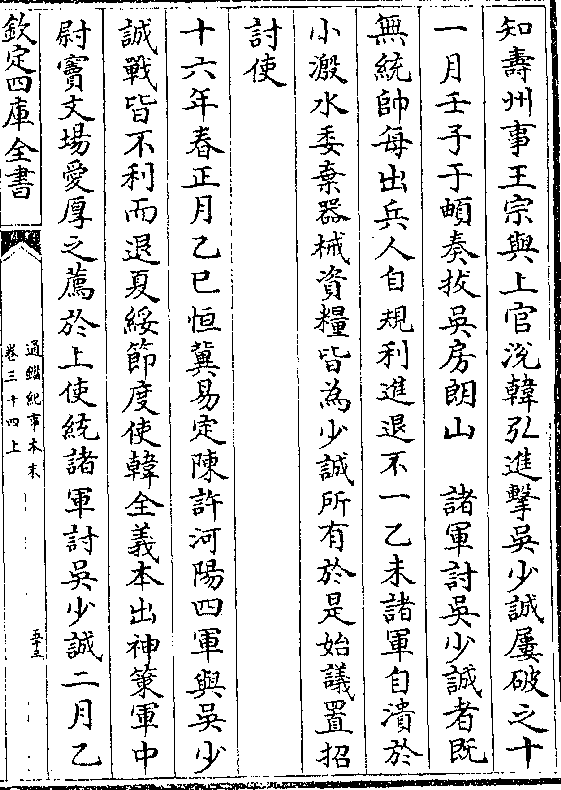 知壽州事王宗與上官涗韓弘進擊吳少誠屢破之十
一月壬子于頔奏拔吳房朗山　諸軍討吳少誠者既
無統帥每出兵人自規利進退不一乙未諸軍自潰於
小溵水委棄器械資糧皆為少誠所有於是始議置招
討使
十六年春正月乙巳恒冀易定陳許河陽四軍與吳少
誠戰皆不利而退夏綏節度使韓全義本出神策軍中
尉竇文場愛厚之薦於上使統諸軍討吳少誠二月乙
欽定四庫全書
通鑑紀事本末
卷三十四上
五十三